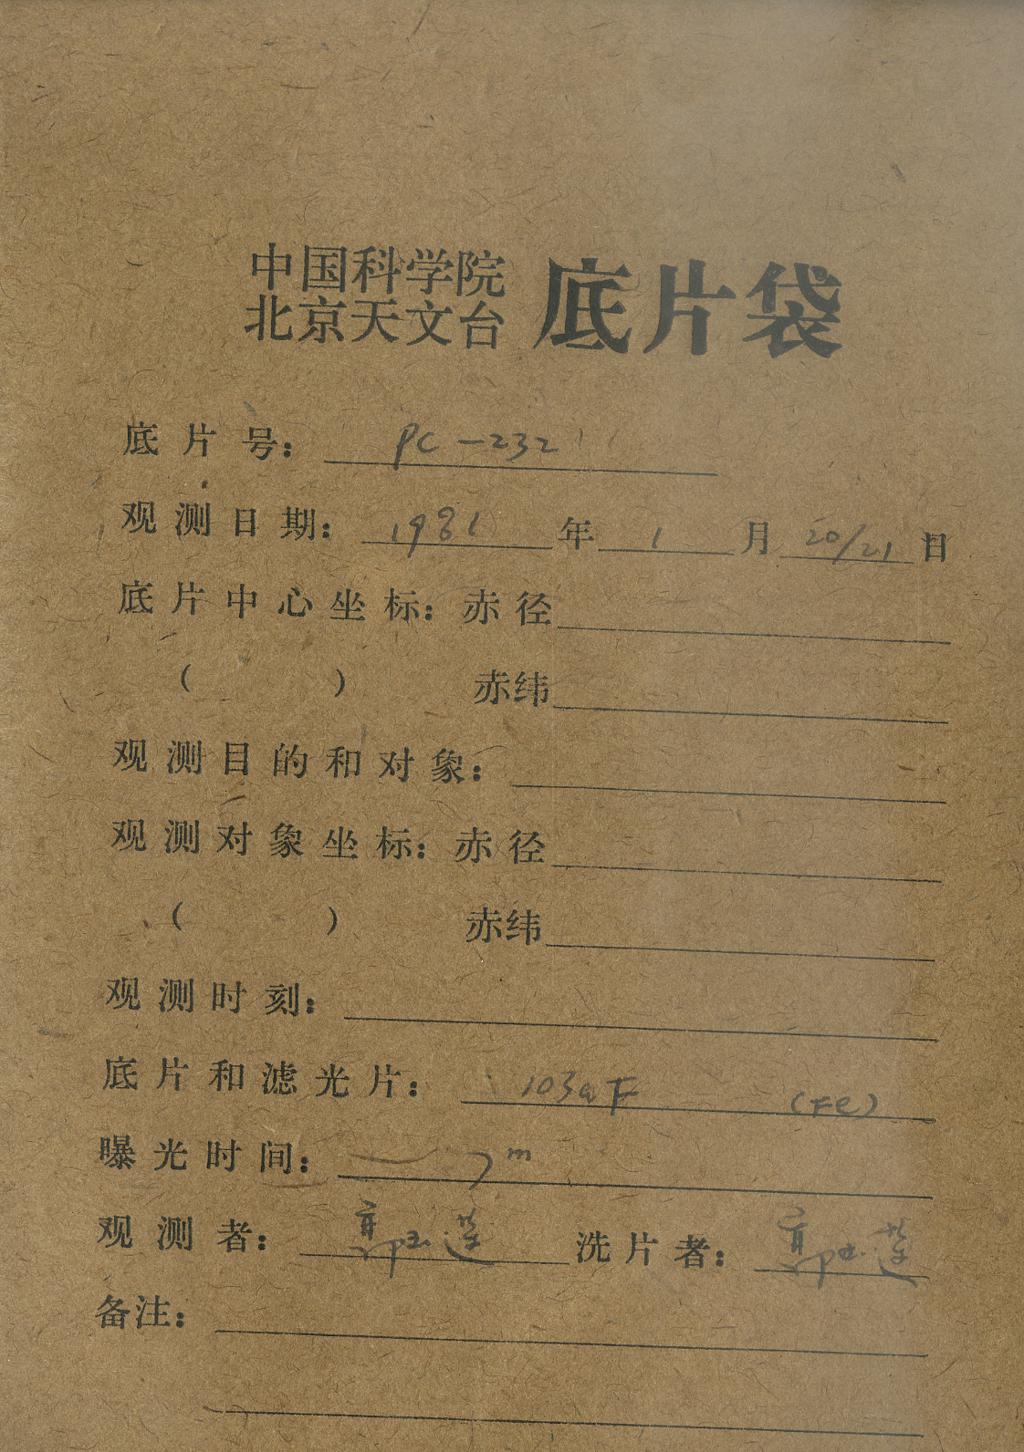 中国科学院
北京天文台 底片袋
底片号: PC-232
观测日期: 1981 年 1 月 20/21 日
底片中心坐标: 赤径
( ) 赤纬
观测目的和对象:
观测对象坐标: 赤径
( ) 赤纬
观测时刻:
底片和滤光片: 103aF (Fe)
曝光时间: 7m
观测者: 郭玉莲 洗片者: 郭玉莲
备注: